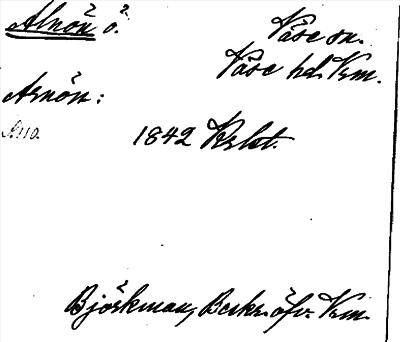 Alnön ö.
Väse sn.
Väse hd. Vrm.
Arnön:
1842 Krlst.
Björkman, Beskr. öfv. Vrm.